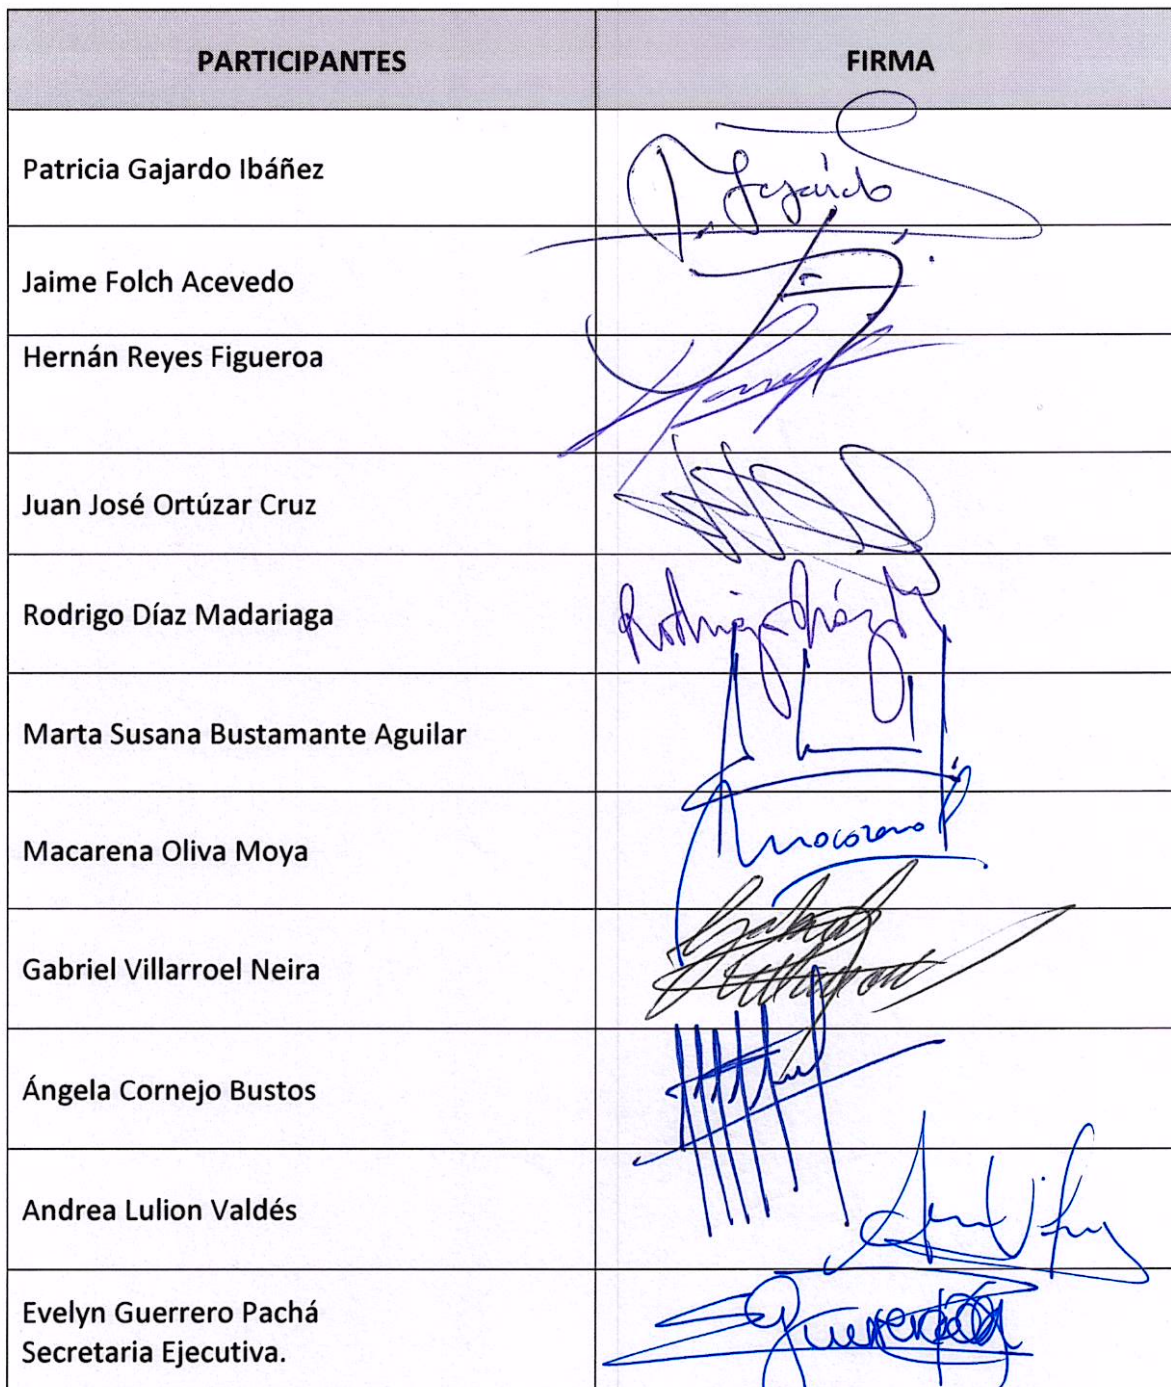 PARTICIPANTES FIRMA
Patricia Gajardo Ibáñez
Gajardo
Jaime Folch Acevedo
Hernán Reyes Figueroa
Juan José Ortúzar Cruz
Rodrigo Díaz Madariaga
Rodrigo Díaz M
Marta Susana Bustamante Aguilar
Macarena Oliva Moya
Macarena
Gabriel Villarroel Neira
Ángela Cornejo Bustos
Andrea Lulion Valdés
Evelyn Guerrero Pachá
Secretaria Ejecutiva.